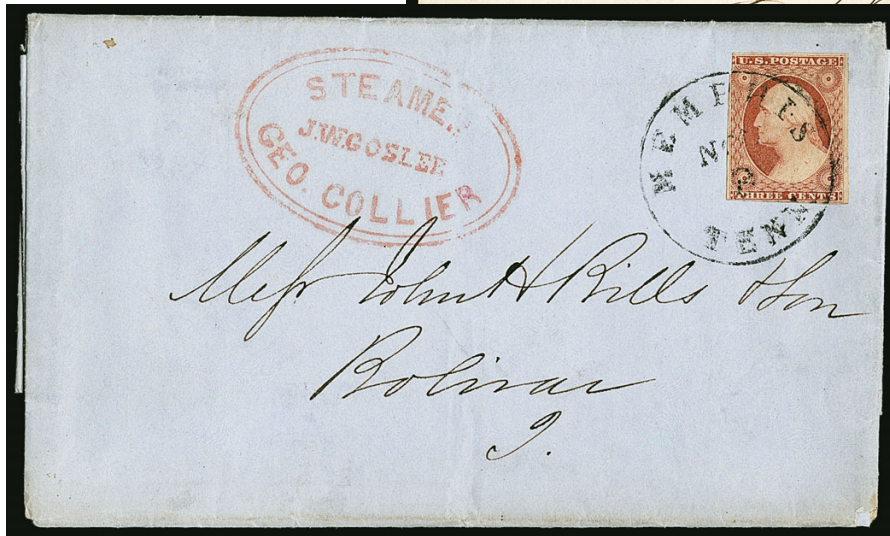 STEAMER
J.W.GOSLEE
GEO. COLLIER
U.S. POSTAGE
THREE CENTS
MEMPHIS
TENN
Messr John H Bills & Son
Bolivar
T.